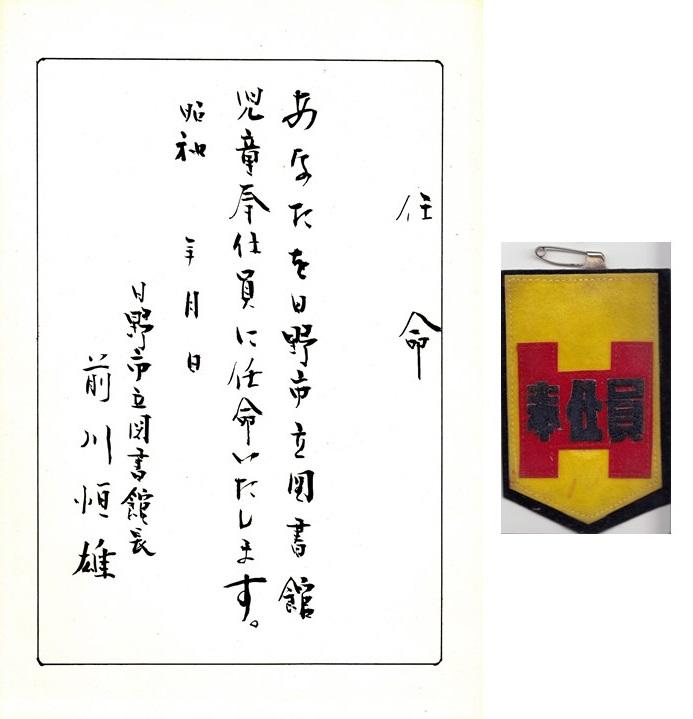 任命
あなたを日野市立図書館
児童奉仕員に任命いたします。
昭和 年 月 日
日野市立図書館長
前川恒雄
奉仕員
H